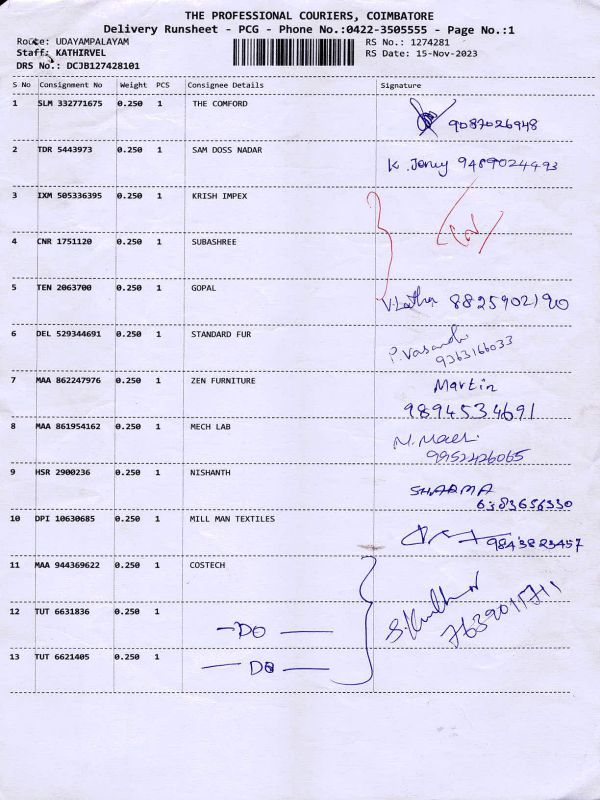 THE PROFESSIONAL COURIERS, COIMBATORE
Delivery Runsheet - PCG - Phone No.:0422-3505555 - Page No.:1
Route: UDAYAMPALAYAM RS No.: 1274281
Staff: KATHIRVEL RS Date: 15-Nov-2023
DRS No.: DCJB127428101
S No Consignment No Weight PCS Consignee Details Signature
1 SLM 332771675 0.250 1 THE COMFORD 9087026948
2 TDR 5443973 0.250 1 SAM DOSS NADAR K. Jeney 9489024493
3 IXM 505336395 0.250 1 KRISH IMPEX
4 CNR 1751120 0.250 1 SUBASHREE
5 TEN 2063700 0.250 1 GOPAL V. Latha 8825902190
6 DEL 529344691 0.250 1 STANDARD FUR P. Vasandhi
9363166033
7 MAA 862247976 0.250 1 ZEN FURNITURE Martin
9894534691
8 MAA 861954162 0.250 1 MECH LAB
9952426065
9 HSR 2900236 0.250 1 NISHANTH SHARMA
6383656330
10 DPI 10630685 0.250 1 MILL MAN TEXTILES 9843823457
11 MAA 944369622 0.250 1 COSTECH
12 TUT 6631836 0.250 1 -DO- 7639011711
13 TUT 6621405 0.250 1 -DO-